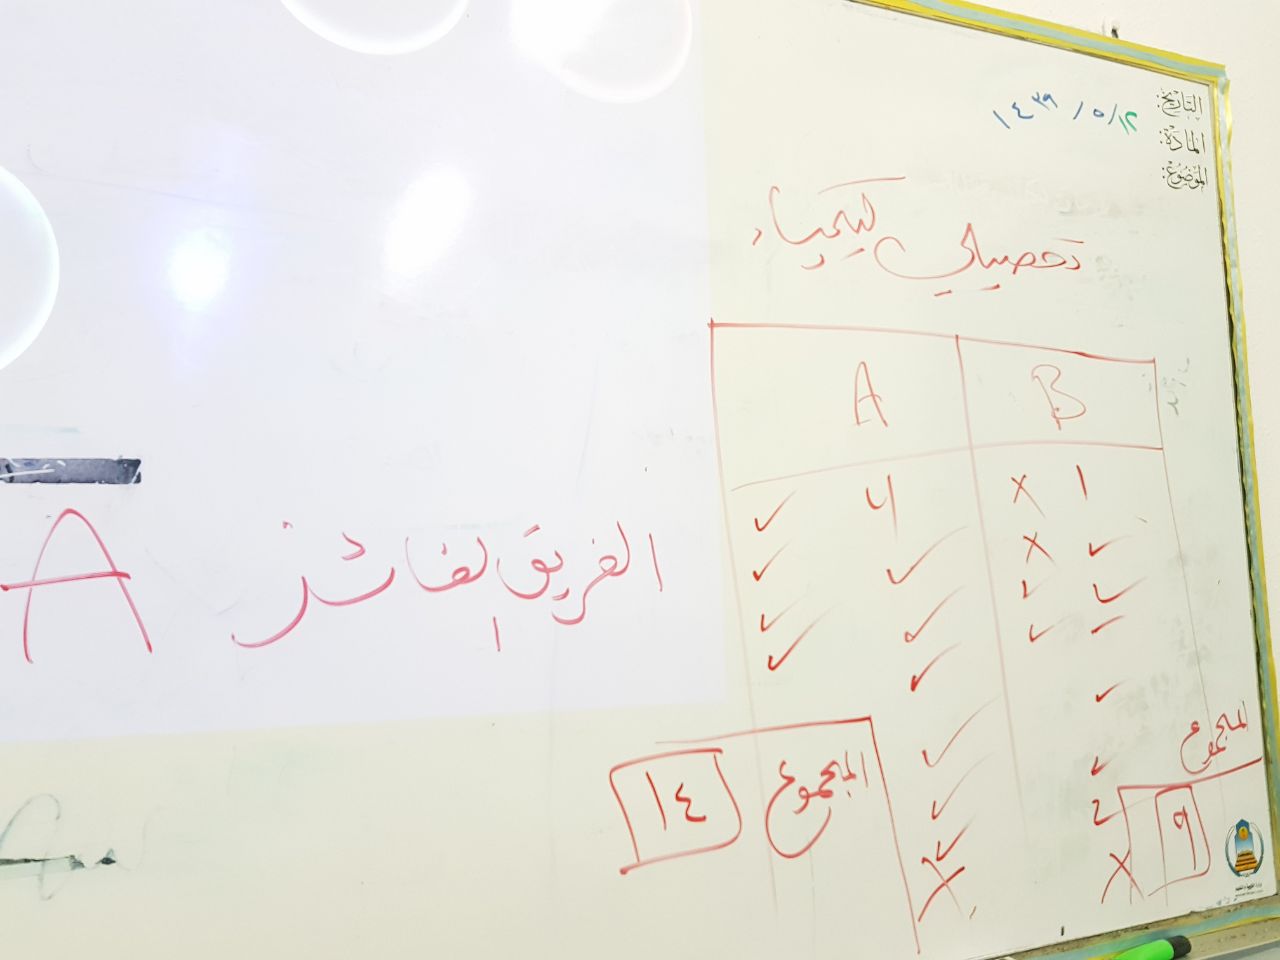 التاريخ: ١٢/ ٥ / ١٤٣٩
المادة:
الموضوع:
تحصيلي كيمياء
B
A
1
4
الفريق الفائز A
المجموع
9
المجموع
١٤